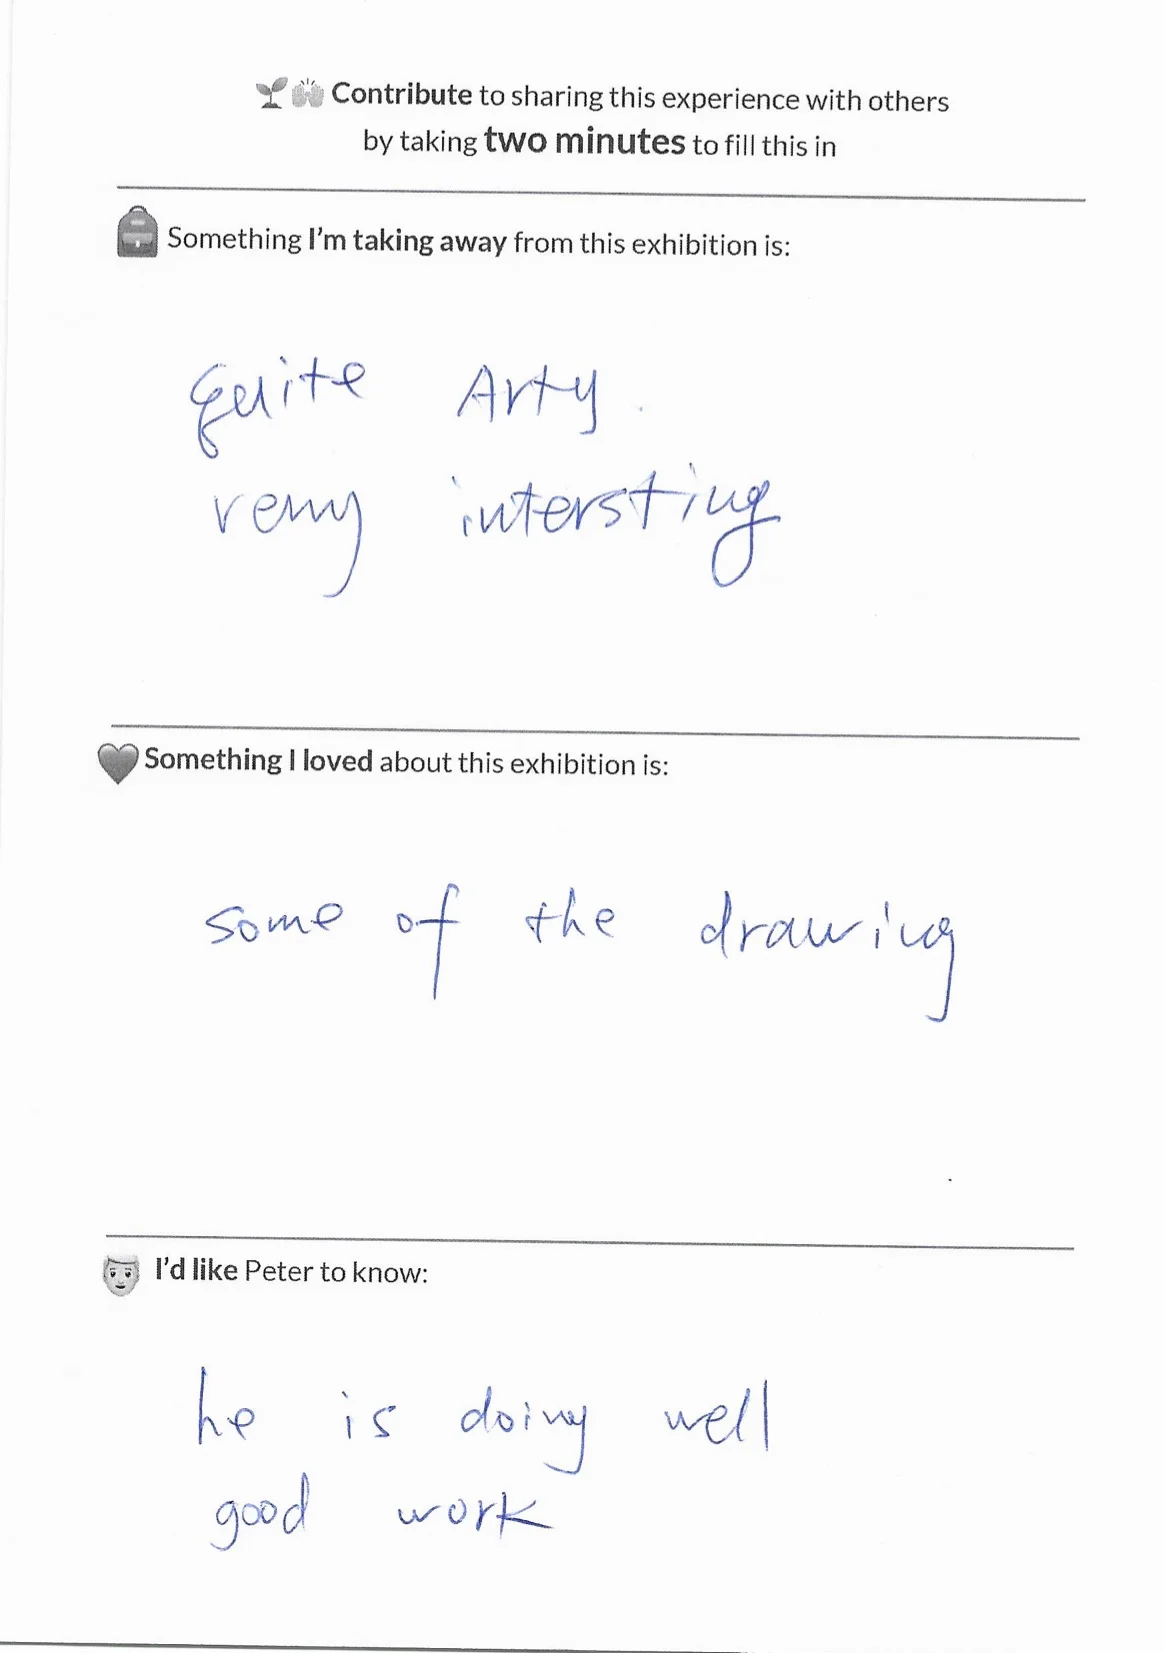 Contribute to sharing this experience with others
by taking two minutes to fill this in
Something I'm taking away from this exhibition is:
Quite Arty
very intersting
Something I loved about this exhibition is:
some of the drawing
I'd like Peter to know:
he is doing well
good work